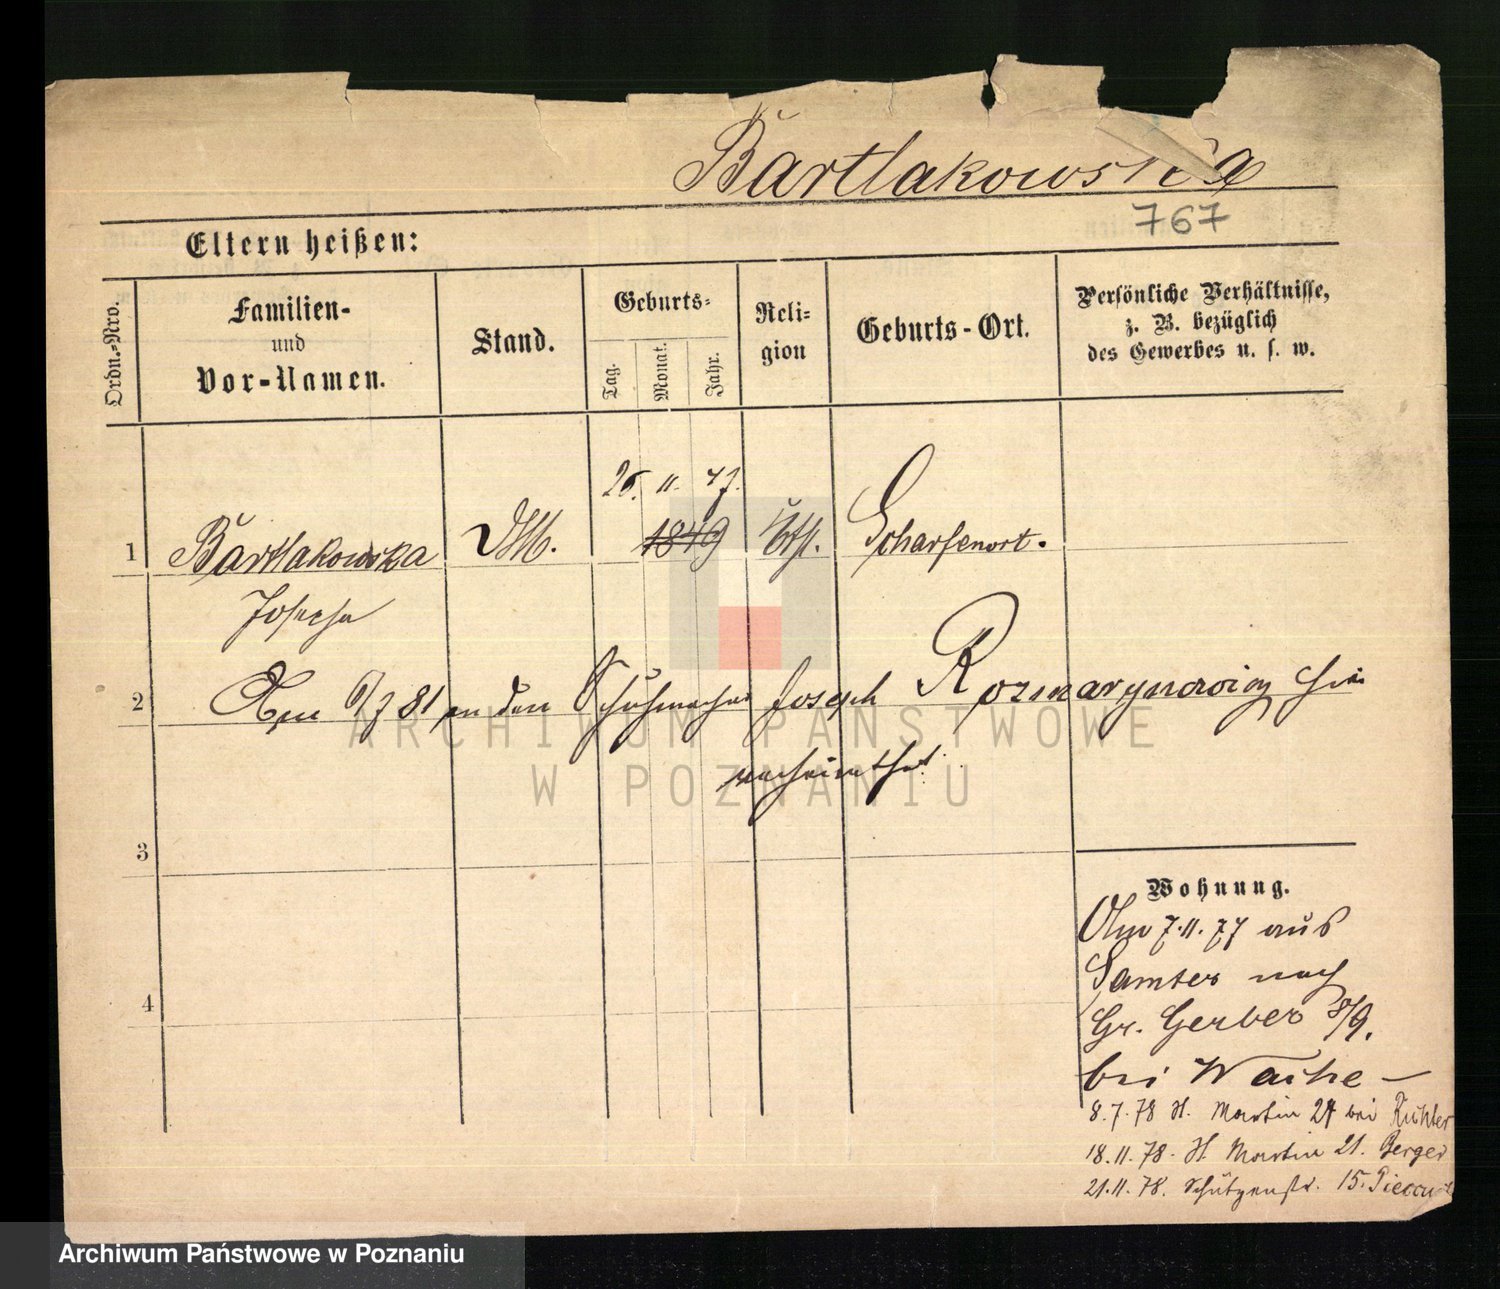 Bartlakowska
767
Eltern heißen:
Ordn.-Nro.
Familien-
und
Vor-Namen.
Stand.
Geburts-
Tag.
Monat.
Jahr.
Reli-
gion
Geburts-Ort.
Persönliche Verhältnisse,
z. B. bezüglich
des Gewerbes u. s. w.
26. 11. 47.
1 Bartlakowska DM. 1849 kth. Scharfenort.
Josepha
2 Am 81 an den Schuhmacher Joseph Rozmarynowicz hier
verheirathet.
3
4
Wohnung.
Am 7.11.77 aus
Samter nach
Gr. Gerber 8/9.
bei
8.7.78 St. Martin 24 bei
18.11.78. St Martin 21. Berger
21.11.78. Schützenstr. 15.
ARCHIWUM PAŃSTWOWE
W POZNANIU
Archiwum Państwowe w Poznaniu